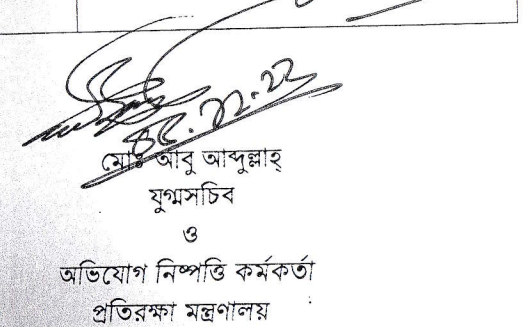 মোঃ আবু আব্দুল্লাহ্
যুগ্মসচিব
ও
অভিযোগ নিষ্পত্তি কর্মকর্তা
প্রতিরক্ষা মন্ত্রণালয়